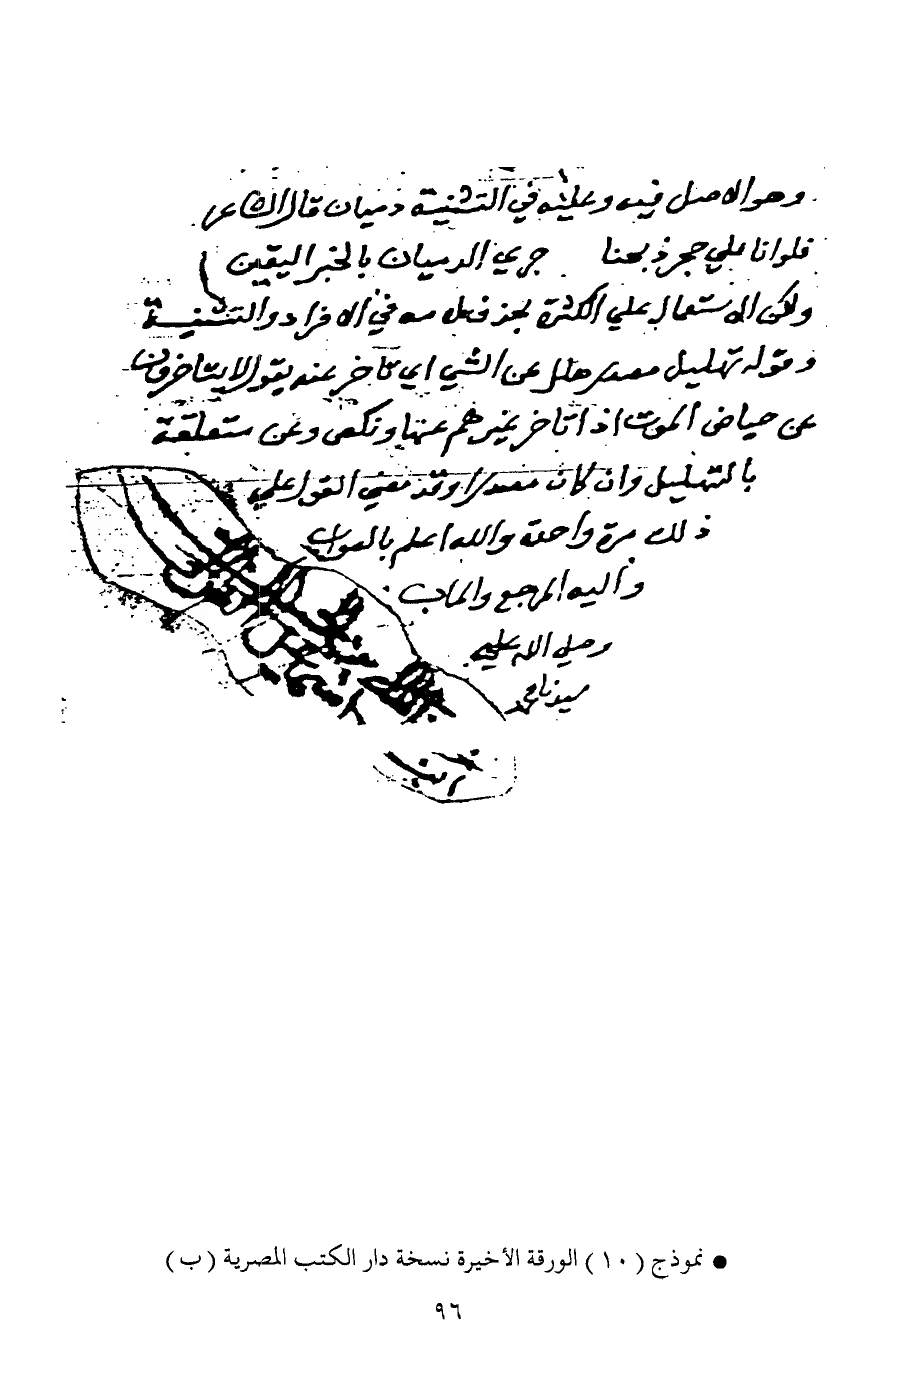 وهو الاصل فيه وعليه في التثنية دميان قال الشاعر
فلوانا علي حجر ذبحنا جري الدميان بالخبر اليقين
ولكن الاستعمال علي الكثرة بحذف لامه في الافراد والتثنية
وقوله تهليل مصدر هلل عن الشي اي تاخر عنه يقول لا يتاخرون
عن حياض الموت اذا تاخر غيرهم عنها ونكص وعن متعلقة
بالتهليل وان كان مصدرا وقد مضي القول علي
ذلك مرة واحدة والله اعلم بالصواب
واليه المرجع والماب
وصلي الله علي
سيدنا محمد
● نموذج ( ١٠ ) الورقة الأخيرة نسخة دار الكتب المصرية ( ب )
٩٦